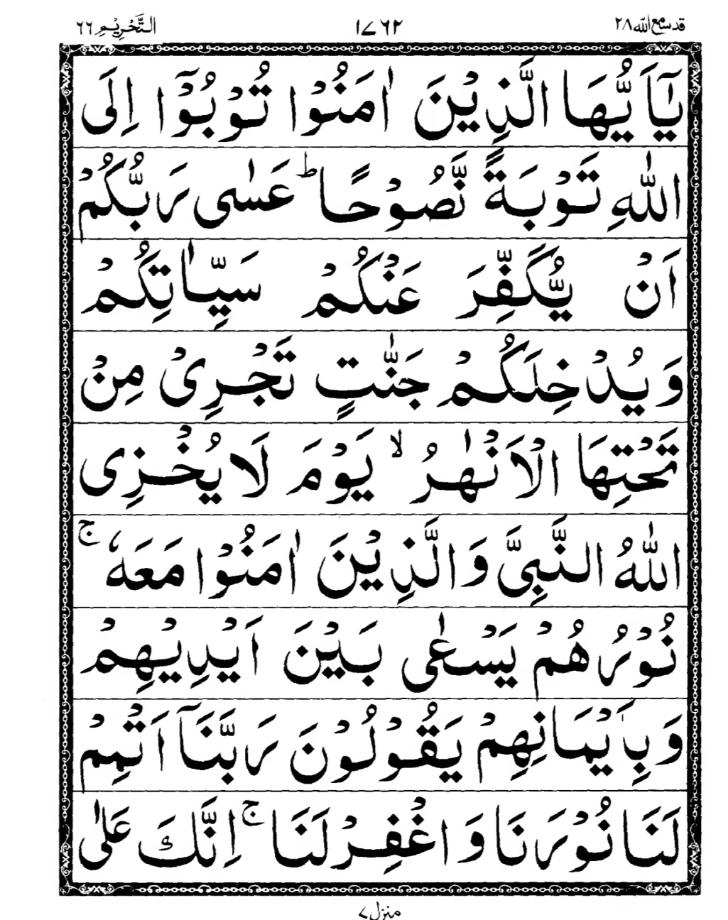 قد سمع الله ٢٨ ١٧٦٢ التَّحْرِيم ٦٦
يٰۤاَيُّهَا الَّذِيْنَ اٰمَنُوْا تُوْبُوْۤا اِلَى
اللّٰهِ تَوْبَةً نَّصُوْحًا ؕ عَسٰى رَبُّكُمْ
اَنْ يُّكَفِّرَ عَنْكُمْ سَيِّاٰتِكُمْ
وَيُدْخِلَكُمْ جَنّٰتٍ تَجْرِىْ مِنْ
تَحْتِهَا الْاَنْهٰرُ ۙ يَوْمَ لَا يُخْزِى
اللّٰهُ النَّبِىَّ وَالَّذِيْنَ اٰمَنُوْا مَعَهٗ ۚ
نُوْرُهُمْ يَسْعٰى بَيْنَ اَيْدِيْهِمْ
وَبِاَيْمَانِهِمْ يَقُوْلُوْنَ رَبَّنَاۤ اَتْمِمْ
لَنَا نُوْرَنَا وَاغْفِرْ لَنَا ۚ اِنَّكَ عَلٰى
منزل ٧